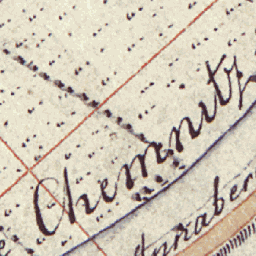 Chemnitz
Annaber